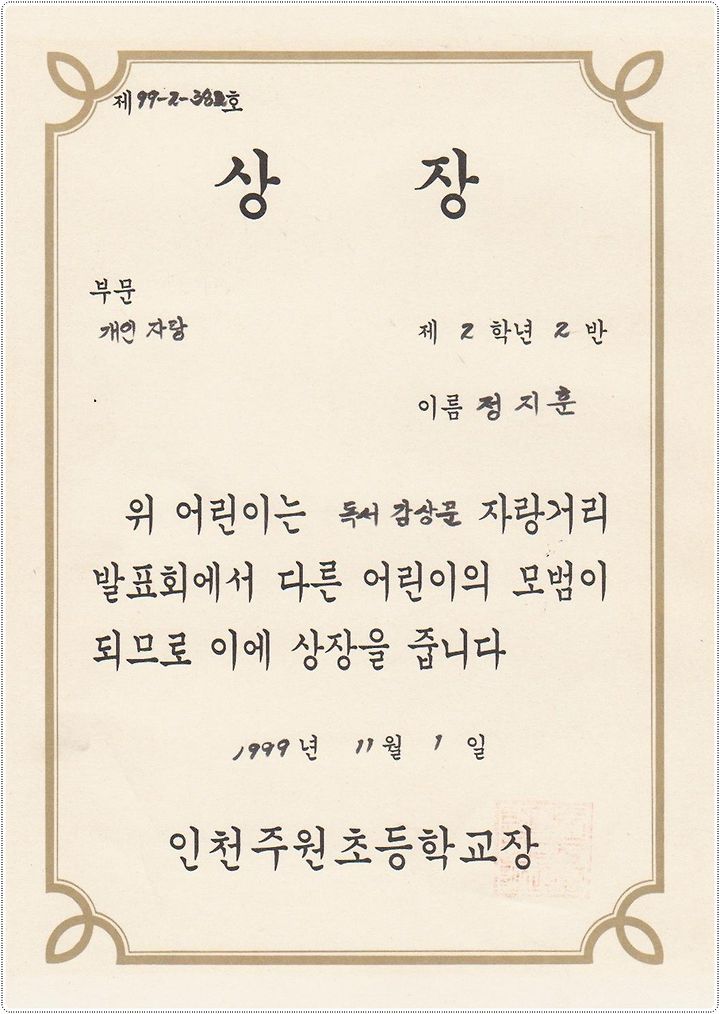 제 99-2-382호
상 장
부문
개인 자랑
제 2 학년 2 반
이름 정지훈
위 어린이는 독서 감상문 자랑거리
발표회에서 다른 어린이의 모범이
되므로 이에 상장을 줍니다
1999년 11월 1 일
인천주원초등학교장